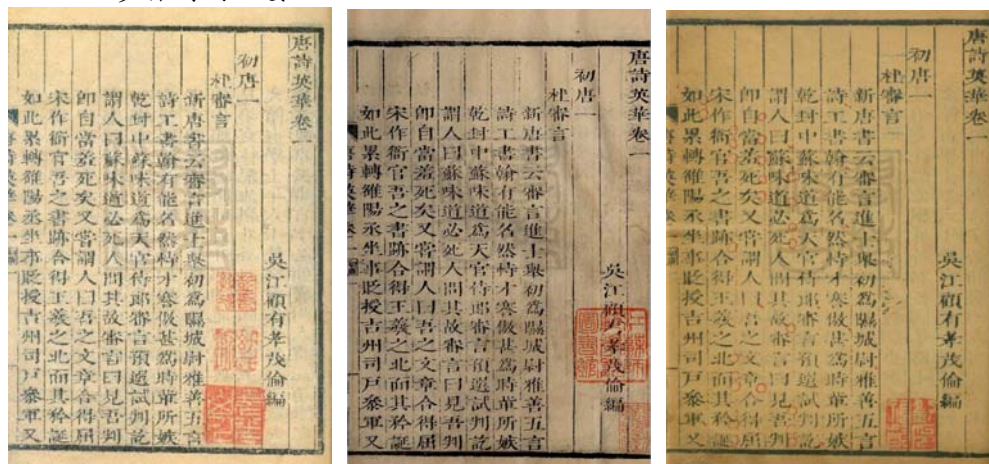 唐詩英華卷一
吳江顧有孝茂倫編
初唐一
杜審言
新唐書云審言進士舉初為隰城尉雅善五言
詩工書翰有能名然恃才謇傲甚為時輩所嫉
乾封中蘇味道為天官侍郎審言預選試判訖
謂人曰蘇味道必死人問其故審言曰見吾判
卽自當羞死矣又嘗謂人曰吾之文章合得屈
宋作衙官吾之書跡合得王羲之北面其矜誕
如此累轉雒陽丞坐事貶授吉州司戶參軍又
唐詩英華卷一
吳江顧有孝茂倫編
初唐一
杜審言
新唐書云審言進士舉初為隰城尉雅善五言
詩工書翰有能名然恃才謇傲甚為時輩所嫉
乾封中蘇味道為天官侍郎審言預選試判訖
謂人曰蘇味道必死人問其故審言曰見吾判
卽自當羞死矣又嘗謂人曰吾之文章合得屈
宋作衙官吾之書跡合得王羲之北面其矜誕
如此累轉雒陽丞坐事貶授吉州司戶參軍又
唐詩英華卷一
吳江顧有孝茂倫編
初唐一
杜審言
新唐書云審言進士舉初為隰城尉雅善五言
詩工書翰有能名然恃才謇傲甚為時輩所嫉
乾封中蘇味道為天官侍郎審言預選試判訖
謂人曰蘇味道必死人問其故審言曰見吾判
卽自當羞死矣又嘗謂人曰吾之文章合得屈
宋作衙官吾之書跡合得王羲之北面其矜誕
如此累轉雒陽丞坐事貶授吉州司戶參軍又